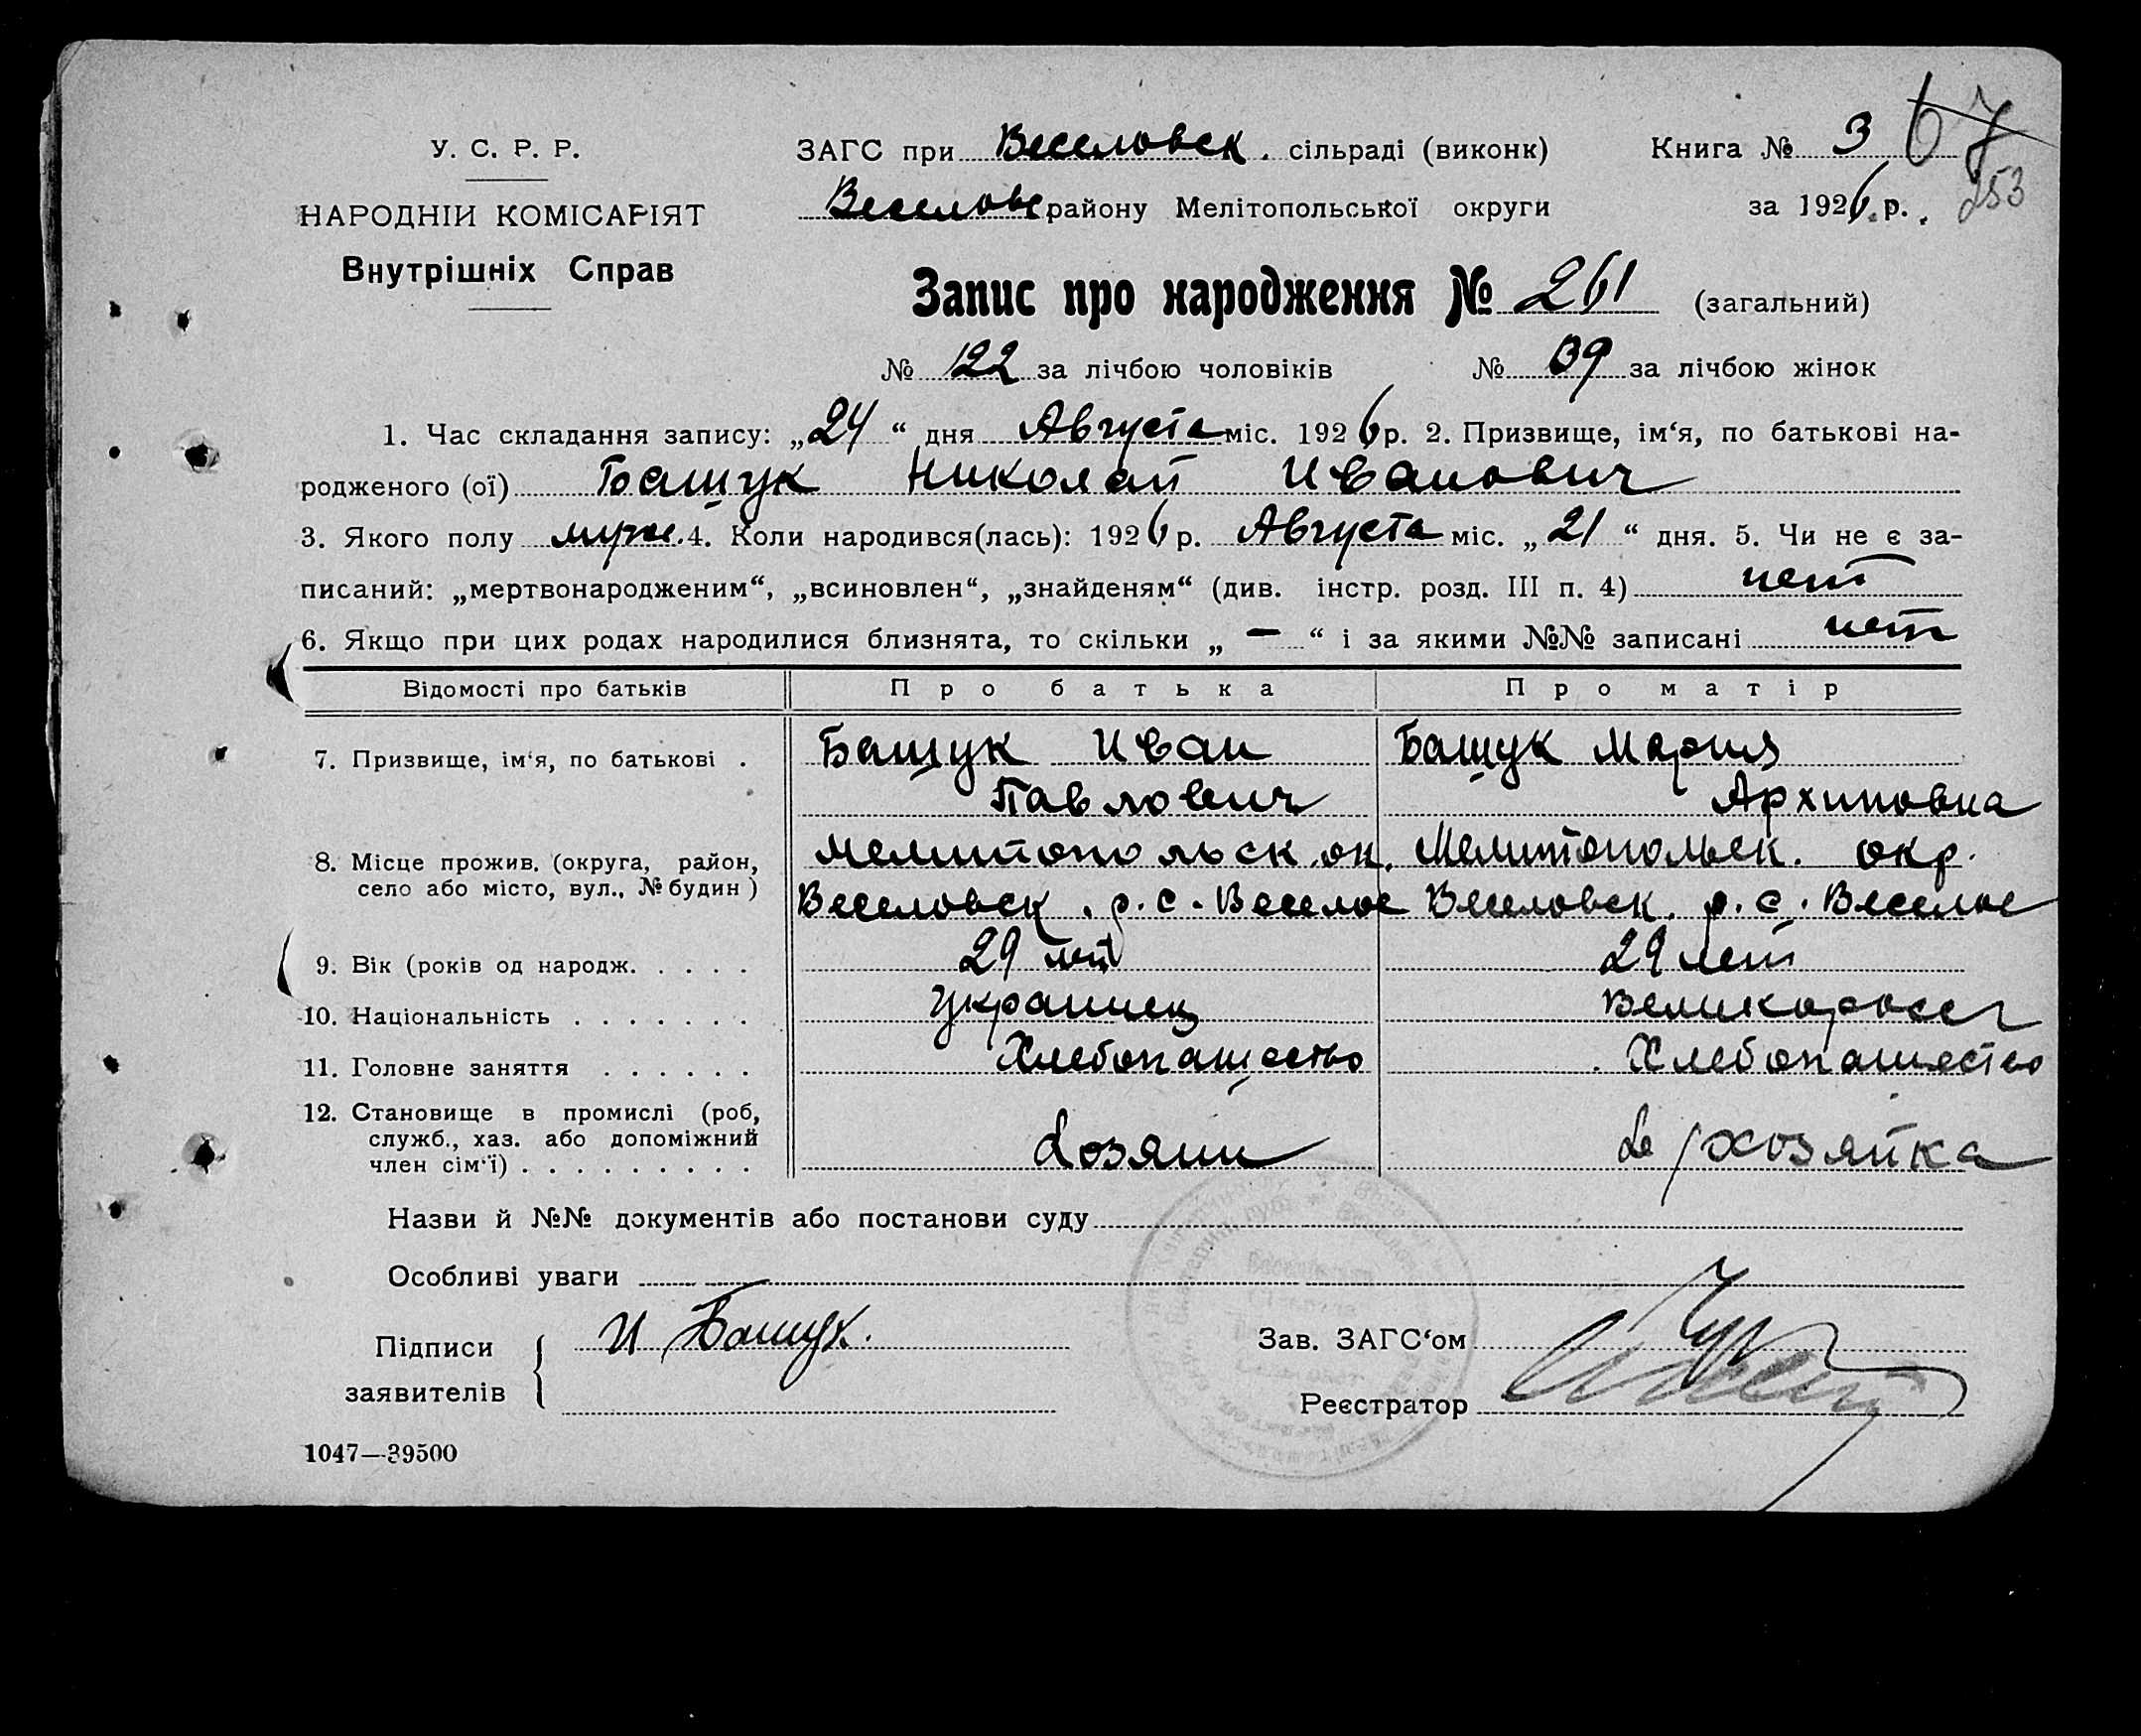 У. С. Р. Р.
НАРОДНІЙ КОМІСАРІЯТ
Внутрішніх Справ
ЗАГС при Веселовск. сільраді (виконк)
Веселовс району Мелітопольської округи
Книга № 3 67
за 1926 р. 253
Запис про народження № 261 (загальний)
№ 122 за лічбою чоловіків № 139 за лічбою жінок
1. Час складання запису: „24“ дня Августа міс. 1926 р. 2. Призвище, ім‘я, по батькові на-
родженого (ої) Башук Николай Иванович
3. Якого полу муж. 4. Коли народився(лась): 1926 р. Августа міс. „21“ дня. 5. Чи не є за-
писаний: „мертвонародженим“, „всиновлен“, „знайденям“ (див. інстр. розд. III п. 4) нет
6. Якщо при цих родах народилися близнята, то скільки „ — “ і за якими №№ записані нет
Відомості про батьків Про батька Про матір
7. Призвище, ім‘я, по батькові . Башук Иван Башук Мария
Павлович Архиповна
8. Місце прожив. (округа, район, Мелитопольск. ок. Мелитопольск. окр.
село або місто, вул., № будин) Веселовск. р. с. Веселое Веселовск. р. с. Веселое
9. Вік (років од народж. . . . . 29 лет 29 лет
10. Національність . . . . . . . Украинец Великоросс
11. Головне заняття . . . . . . Хлебопашество Хлебопашество
12. Становище в промислі (роб,
служб., хаз. або допоміжний
член сім‘ї) . . . . . . . . . хозяин хозяйка
Назви й №№ документів або постанови суду
Особливі уваги
Підписи
заявителів
И Башук.
Зав. ЗАГС‘ом
Реєстратор
1047—39500